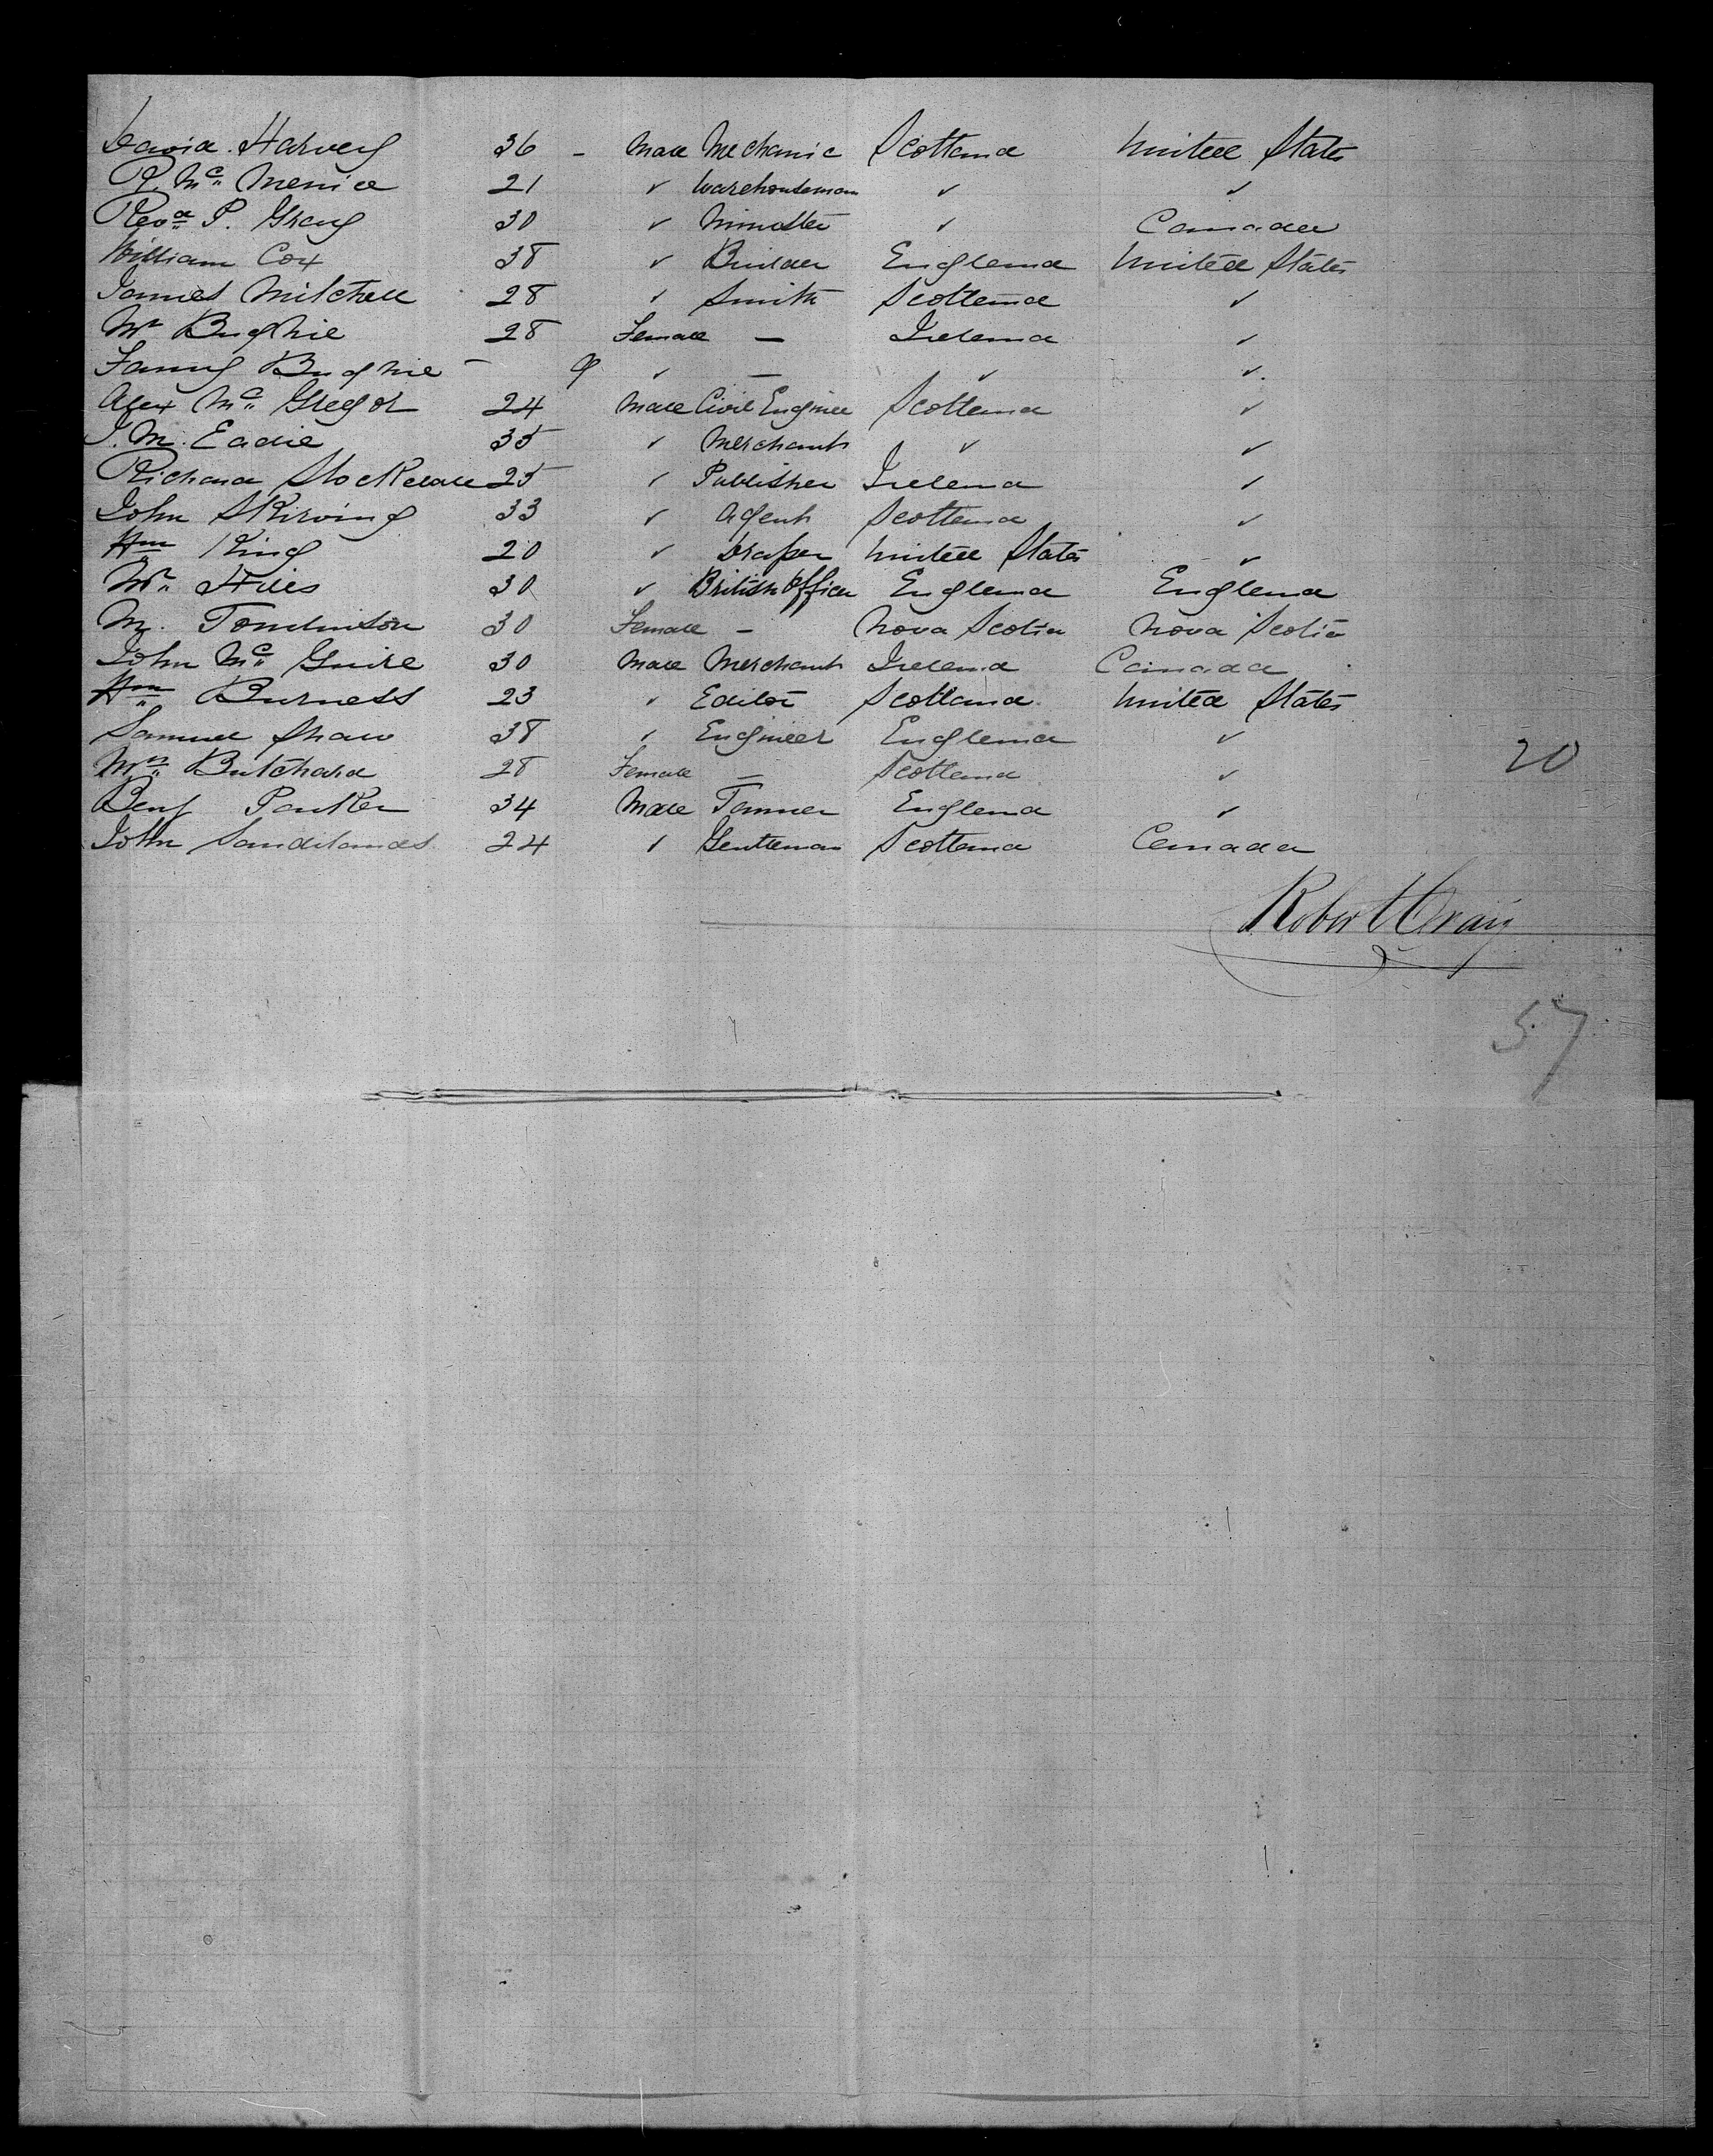 David Harvey 36 - Male Mechanic Scotland United States
R. Mc Menice 21 " Warehouseman " "
Revd P. Gray 30 " Minister " Canada
William Cox 38 " Builder England United States
James Mitchell 28 " Smith Scotland "
28 Female — Ireland "
Fanny — 9 " — " "
Alex Mc Gregor 24 Male Civil Engineer Scotland "
J. M. Eadie 35 " Merchant " "
Richard Stockdale 25 " Publisher Ireland "
John Skirving 33 " Agent Scotland "
Wm King 20 " Draper United States "
Mr 30 " British Officer England England
M. Tomlinson 30 Female — Nova Scotia Nova Scotia
John Mc Guire 30 Male Merchant Ireland Canada
Wm Burness 23 " Editor Scotland United States
Samuel Shaw 38 " Engineer England "
Mrs Butchard 28 Female — Scotland "
20
Benj Parker 34 Male Tanner England "
John Sandilands 24 " Gentleman Scotland Canada
Robert Craig
57